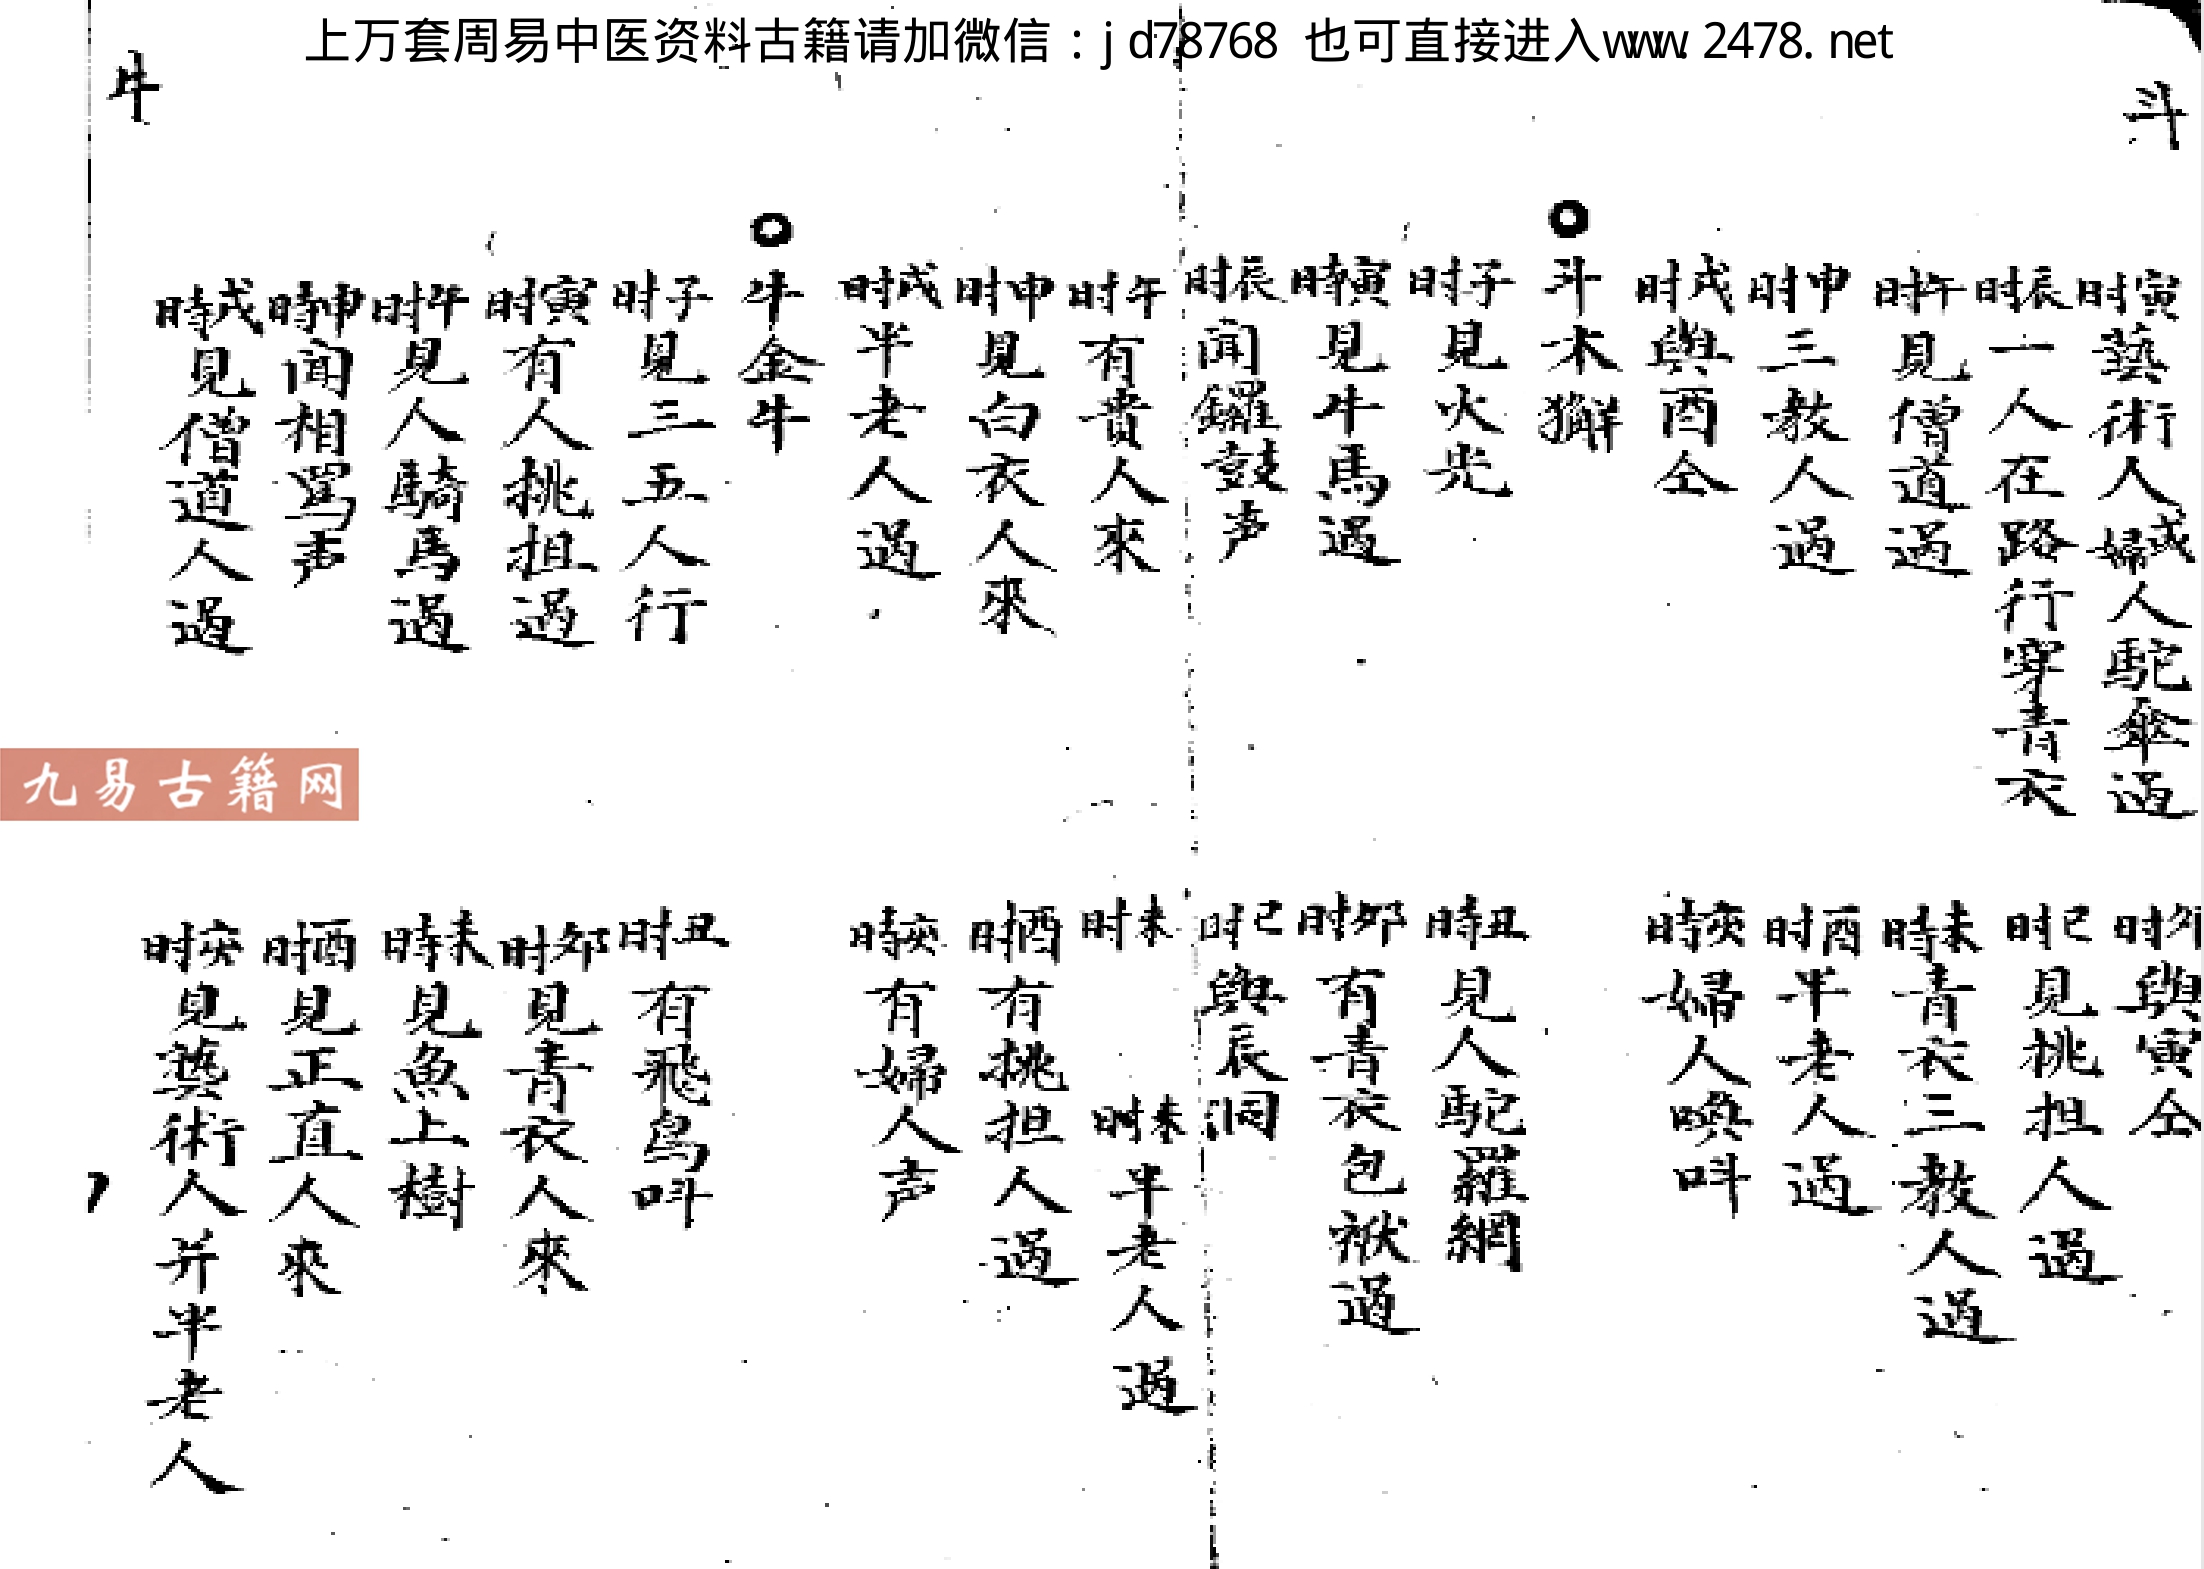 上万套周易中医资料古籍请加微信：jd78768 也可直接进入www.2478.net
斗
寅時藝術人或婦人駝傘過
卯时與寅仝
辰时一人在路行穿青衣
巳时見挑担人過
午时見僧道過
未時青衣三教人過
申时三教人過
酉时半老人過
戌时與酉仝
亥時婦人喚呌
○斗木獬
子时見火光
丑時見人駝羅網
寅時見牛馬過
卯时有青衣包袱過
辰时聞鑼鼓声
巳时與辰洞
午时有貴人來
未时
未时半老人過
申时見白衣人來
酉时有挑担人過
戌时半老人過
亥時有婦人声
○牛金牛
子时見三五人行
丑时有飛鳥呌
寅时有人挑担過
卯时見青衣人來
午时見人騎馬過
未時見魚上樹
申時聞相罵声
酉时見正直人來
戌時見僧道人過
亥时見藝術人并半老人
牛
九易古籍网